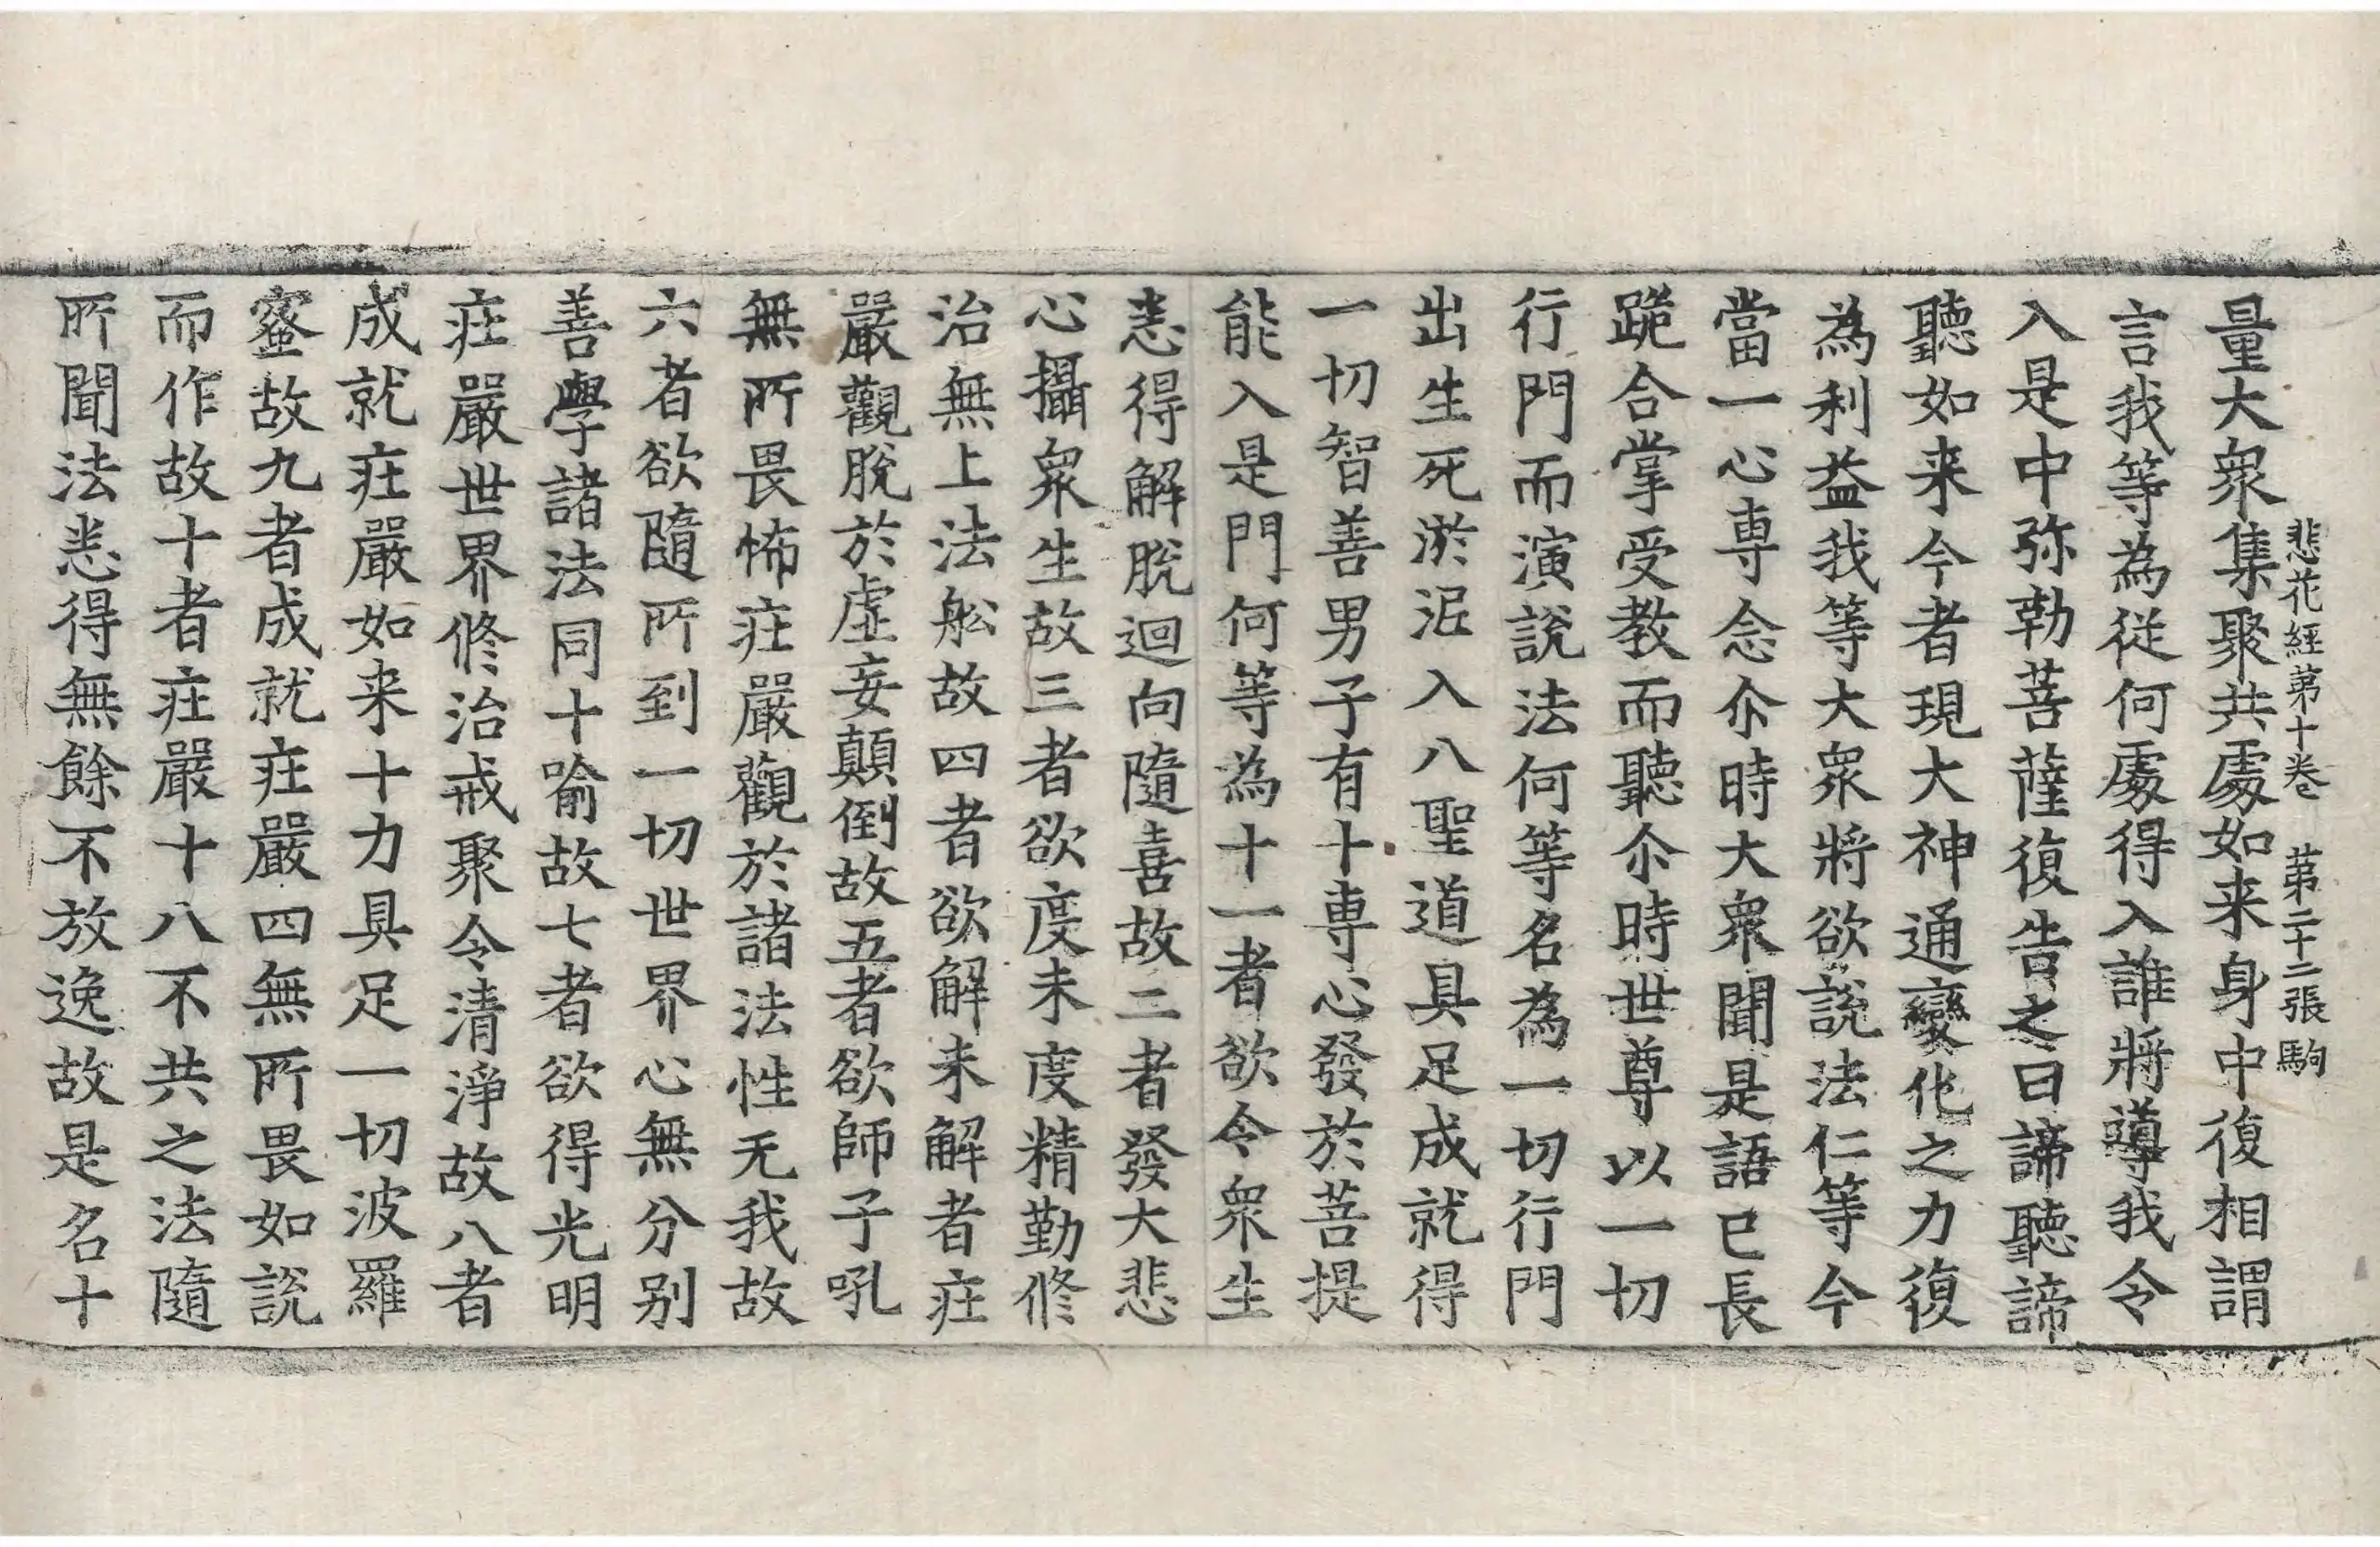 悲花經第十卷 第二十二張 駒
量大衆集聚共處如来身中復相謂
言我等為從何處得入誰將導我令
入是中弥勒菩薩復告之曰諦聽諦
聽如来今者現大神通變化之力復
為利益我等大衆將欲說法仁等今
當一心専念尒時大衆聞是語已長
跪合掌受教而聽尒時世尊以一切
行門而演說法何等名為一切行門
出生死淤泥入八聖道具足成就得
一切智善男子有十専心發於菩提
能入是門何等為十一者欲令衆生
悉得解脫迴向隨喜故二者發大悲
心攝衆生故三者欲度未度精勤修
治無上法舩故四者欲解未解者莊
嚴觀脫於虛妄顛倒故五者欲師子吼
無所畏怖莊嚴觀於諸法性无我故
六者欲隨所到一切世界心無分别
善學諸法同十喻故七者欲得光明
莊嚴世界修治戒聚令清淨故八者
成就莊嚴如来十力具足一切波羅
蜜故九者成就莊嚴四無所畏如說
而作故十者莊嚴十八不共之法隨
所聞法悉得無餘不放逸故是名十